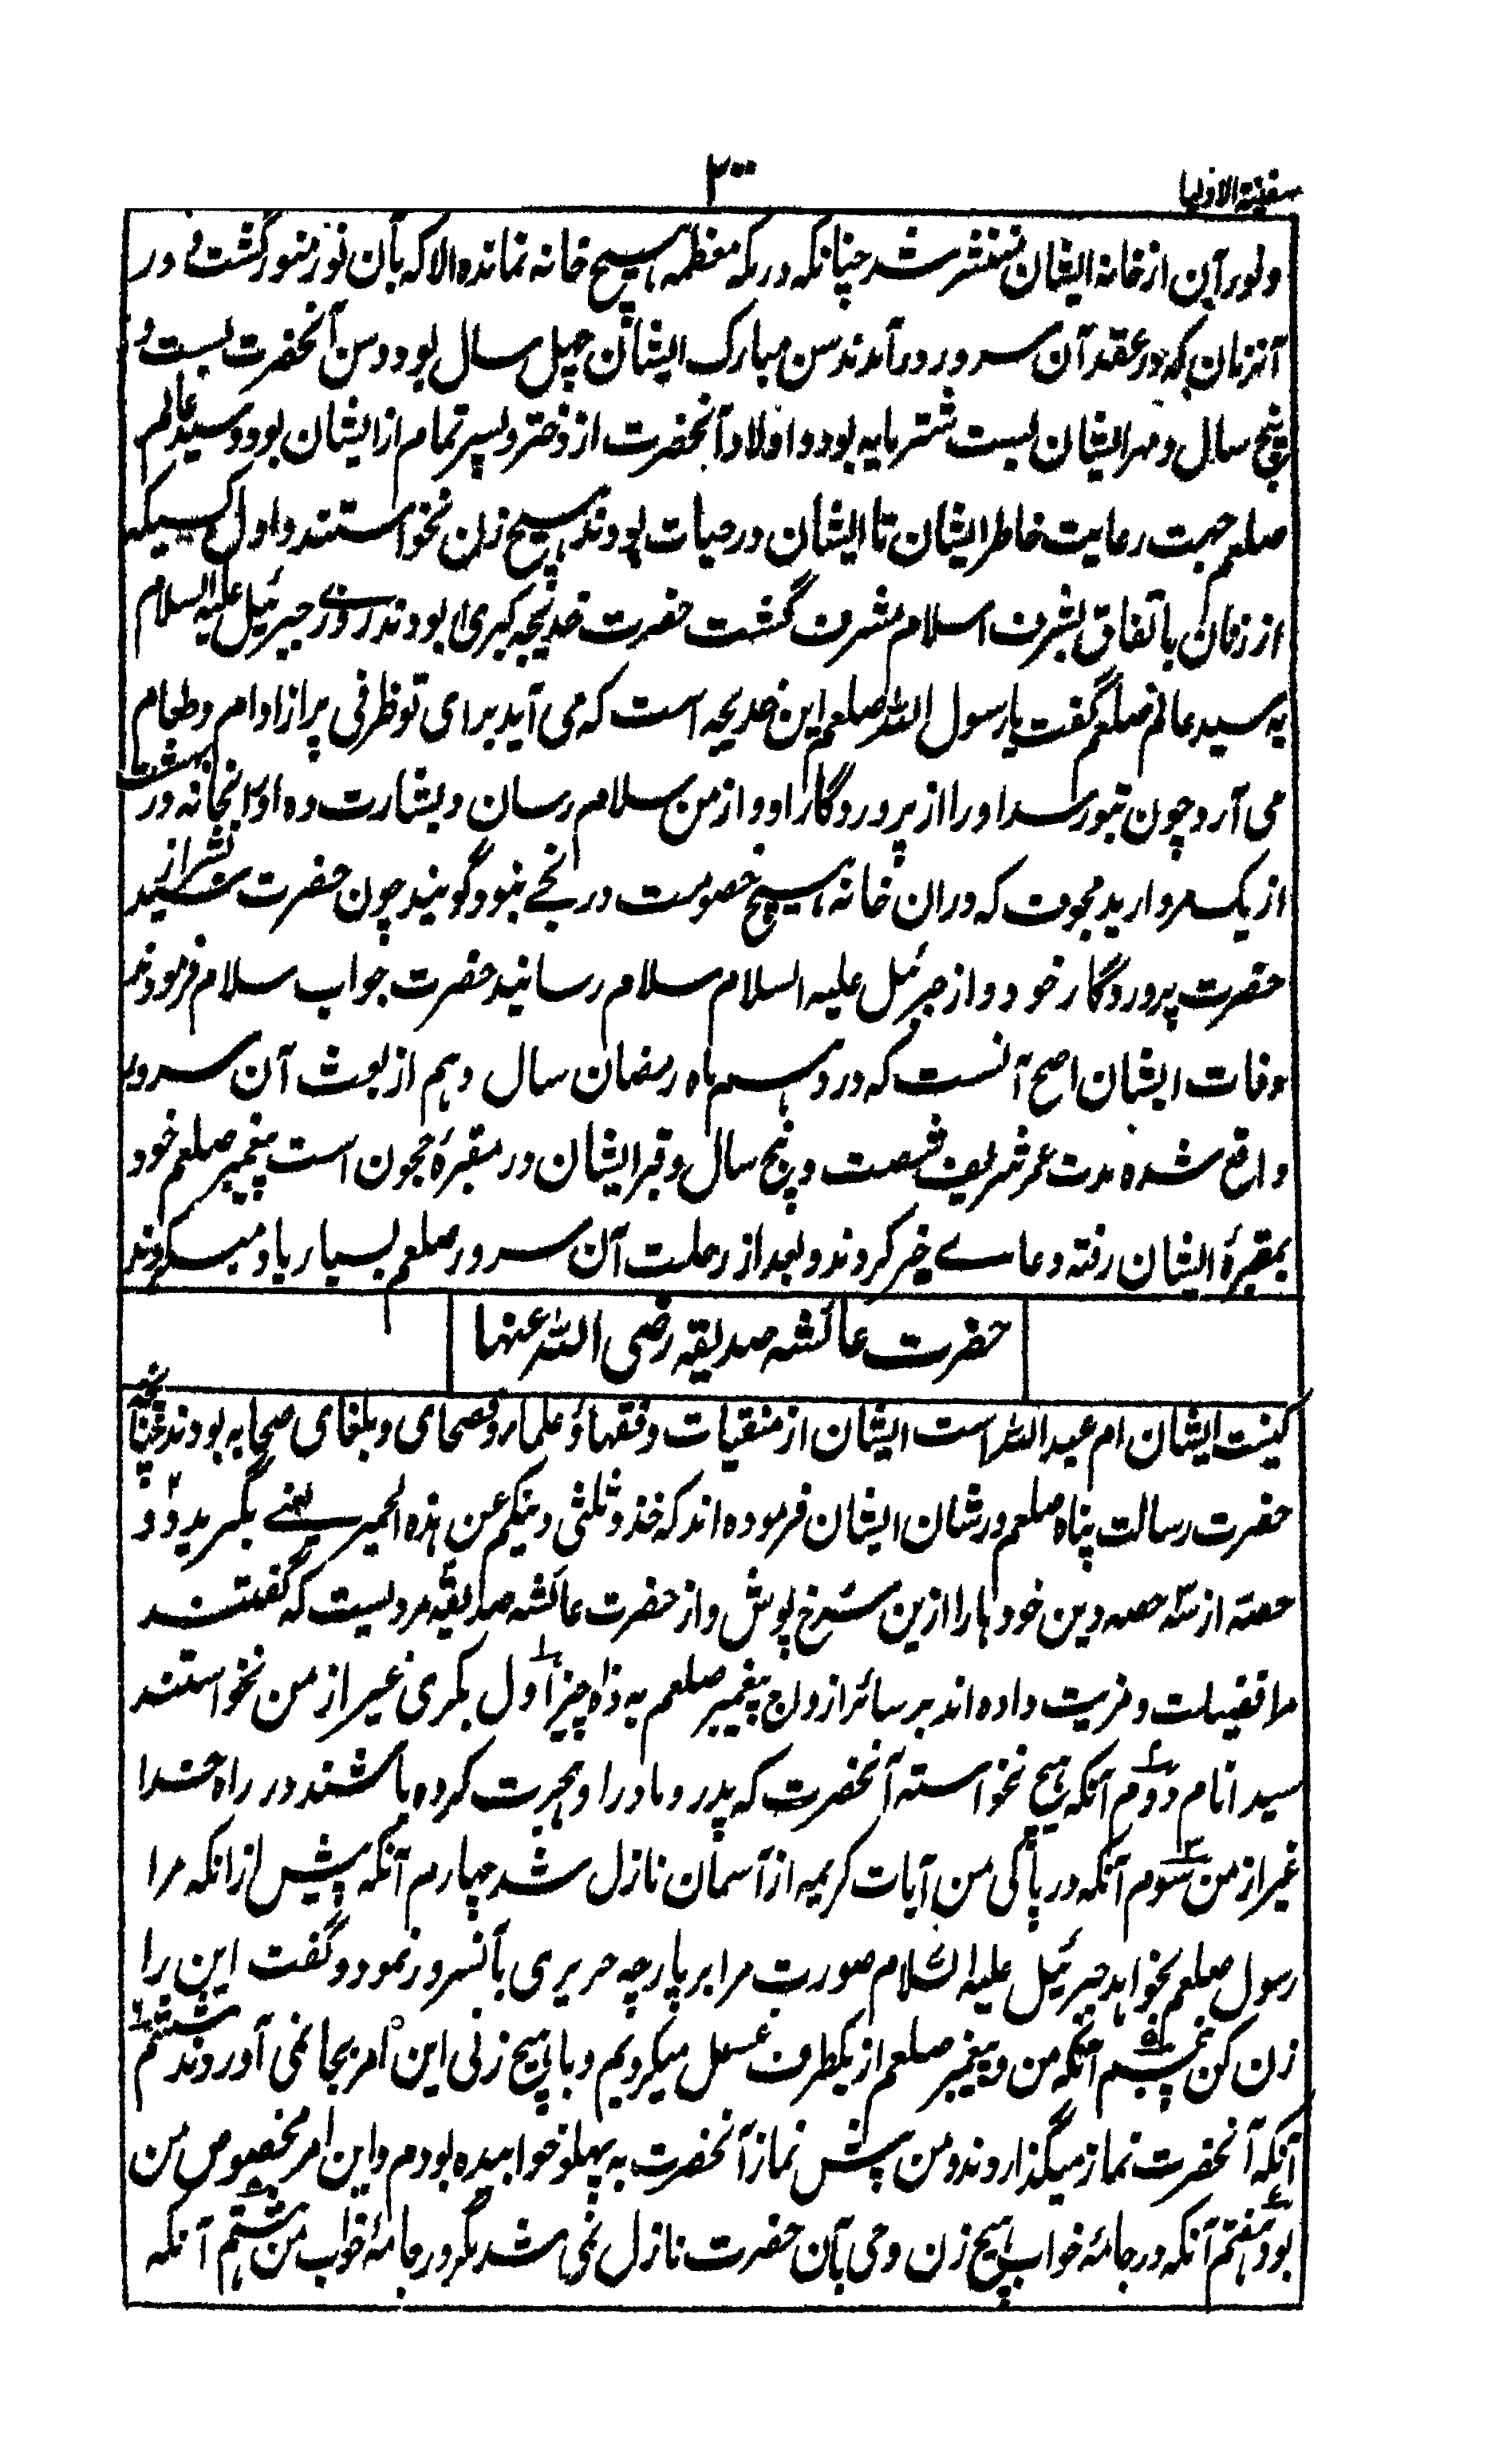 سفینة الاولیا
۲۰۰
و نور آن از خانه ایشان منتشر شد چنانکه در مکه معظمه هیچ خانه نمانده الا که بآن نور منور گشت و در
آنزمان که در عقد آن سرور درآمدند سن مبارک ایشان چهل سال بود و سن آنحضرت بست و
پنج سال و مهر ایشان بست شتر مایه بود و اولاد آنحضرت از دختر و پسر تمام از ایشان بود و سید عالم
صلعم جهت رعایت خاطر ایشان تا ایشان در حیات بودند هیچ زن نخواستند و اول کسیکه
از زنان باتفاق بشرف اسلام مشرف گشت حضرت خدیجه کبری بودند روزے جبرئیل علیه السلام
به سید عالم صلعم گفت یا رسول الله صلعم این خدیجه است که می آید برای تو ظرفی پر از ادام و طعام
می آرد چون بتو رسد او را از پروردگار او و از من سلام رسان و بشارت ده او را بخانه در بهشت
از یک مروارید مجوف که دران خانه هیچ خصومت و رنجے نبود گویند چون حضرت سید بشر از
حضرت پروردگار خود و از جبرئیل علیه السلام سلام رسانید حضرت جواب سلام فرمودند
وفات ایشان اصح آنست که در دهم ماه رمضان سال دهم از بعث آن سرور
واقع شده مدت عمر شریف شصت و پنج سال و قبر ایشان در مقبرهٔ حجون است پیغمبر صلعم خود
بمقبرهٔ ایشان رفته دعاے خیر کردند و بعد از رحلت آن سرور صلعم بسیار یاد میکردند
حضرت عائشه صدیقه رضی الله عنها
کنیت ایشان ام عبد الله است ایشان از منقیات و فقها و علما و فصحای و بلغای صحابه بودند چنانچه
حضرت رسالت پناه صلعم در شان ایشان فرموده اند که خذو ثلثی دینکم عن هذه الحمیر یعنے بگیرید دو
حصه از سه حصه دین خودها را ازین سرخ پوش و از حضرت عائشه صدیقه مرویست که گفتند
مرا فضیلت و مزیت داده اند بر سائر ازواج پیغمبر صلعم به ده چیز اول بکری غیر از من نخواستند
سید انام دوم آنکه هیچ نخواسته آنحضرت که پدر و مادر او هجرت کرده باشند در راه خدا
غیر از من سوم آنکه در پاکی من آیات کریمه از آسمان نازل شد چهارم آنکه پیش ازانکه مرا
رسول صلعم بخواهد جبرئیل علیه السلام صورت مرا بر پارچه حریری بآنسرور نمود و گفت این را
زن کن پنجم آنکه من و پیغمبر صلعم از یکطرف غسل میکردیم و با هیچ زنی این امر بجا نمی آوردند ششم
آنکه آنحضرت نماز میگذاردند و من پیش نماز آنحضرت به پهلو خوابیده بودم و این امر مخصوص من
بود هفتم آنکه در جامهٔ خواب هیچ زن وحی بآن حضرت نازل نمی شد مگر در جامهٔ خواب من هشتم آنکه